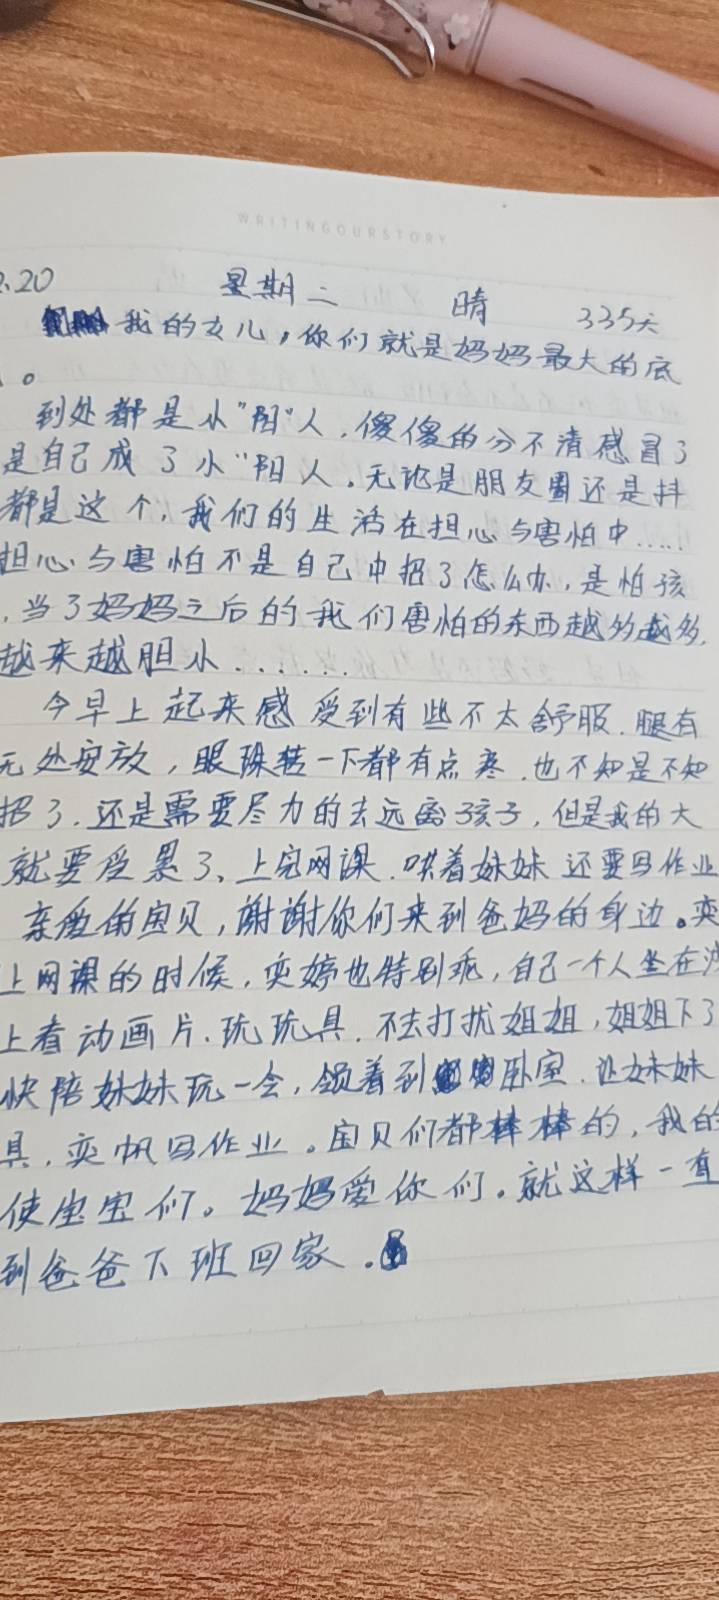 WRITINGOURSTORY
2.20 星期二 晴 335天
我的女儿，你们就是妈妈最大的底
。
到处都是小"阳"人，傻傻的分不清感冒了
是自己成了小"阳人，无论是朋友圈还是抖
都是这个，我们的生活在担心与害怕中.....
担心与害怕不是自己中招了怎么办，是怕孩
，当了妈妈之后的我们害怕的东西越多越多，
越来越胆小......
今早上起来感受到有些不太舒服，腿有
无处安放，眼珠转一下都有点疼，也不知是不知
招了，还是需要尽力的去远离孩子，但是我的大
就要受累了、上完网课，哄着妹妹还要写作业
亲爱的宝贝，谢谢你们来到爸妈的身边。奕
上网课的时候，奕婷也特别乖，自己一个人坐在沙
上看动画片、玩玩具，不去打扰姐姐，姐姐下了
快陪妹妹玩一会，领着到卧室，让妹妹
具，奕帆写作业。宝贝们都棒棒的，我的
使宝宝们。妈妈爱你们。就这样一直
到爸爸下班回家。